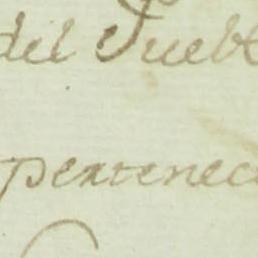 del Pueb
pertenec